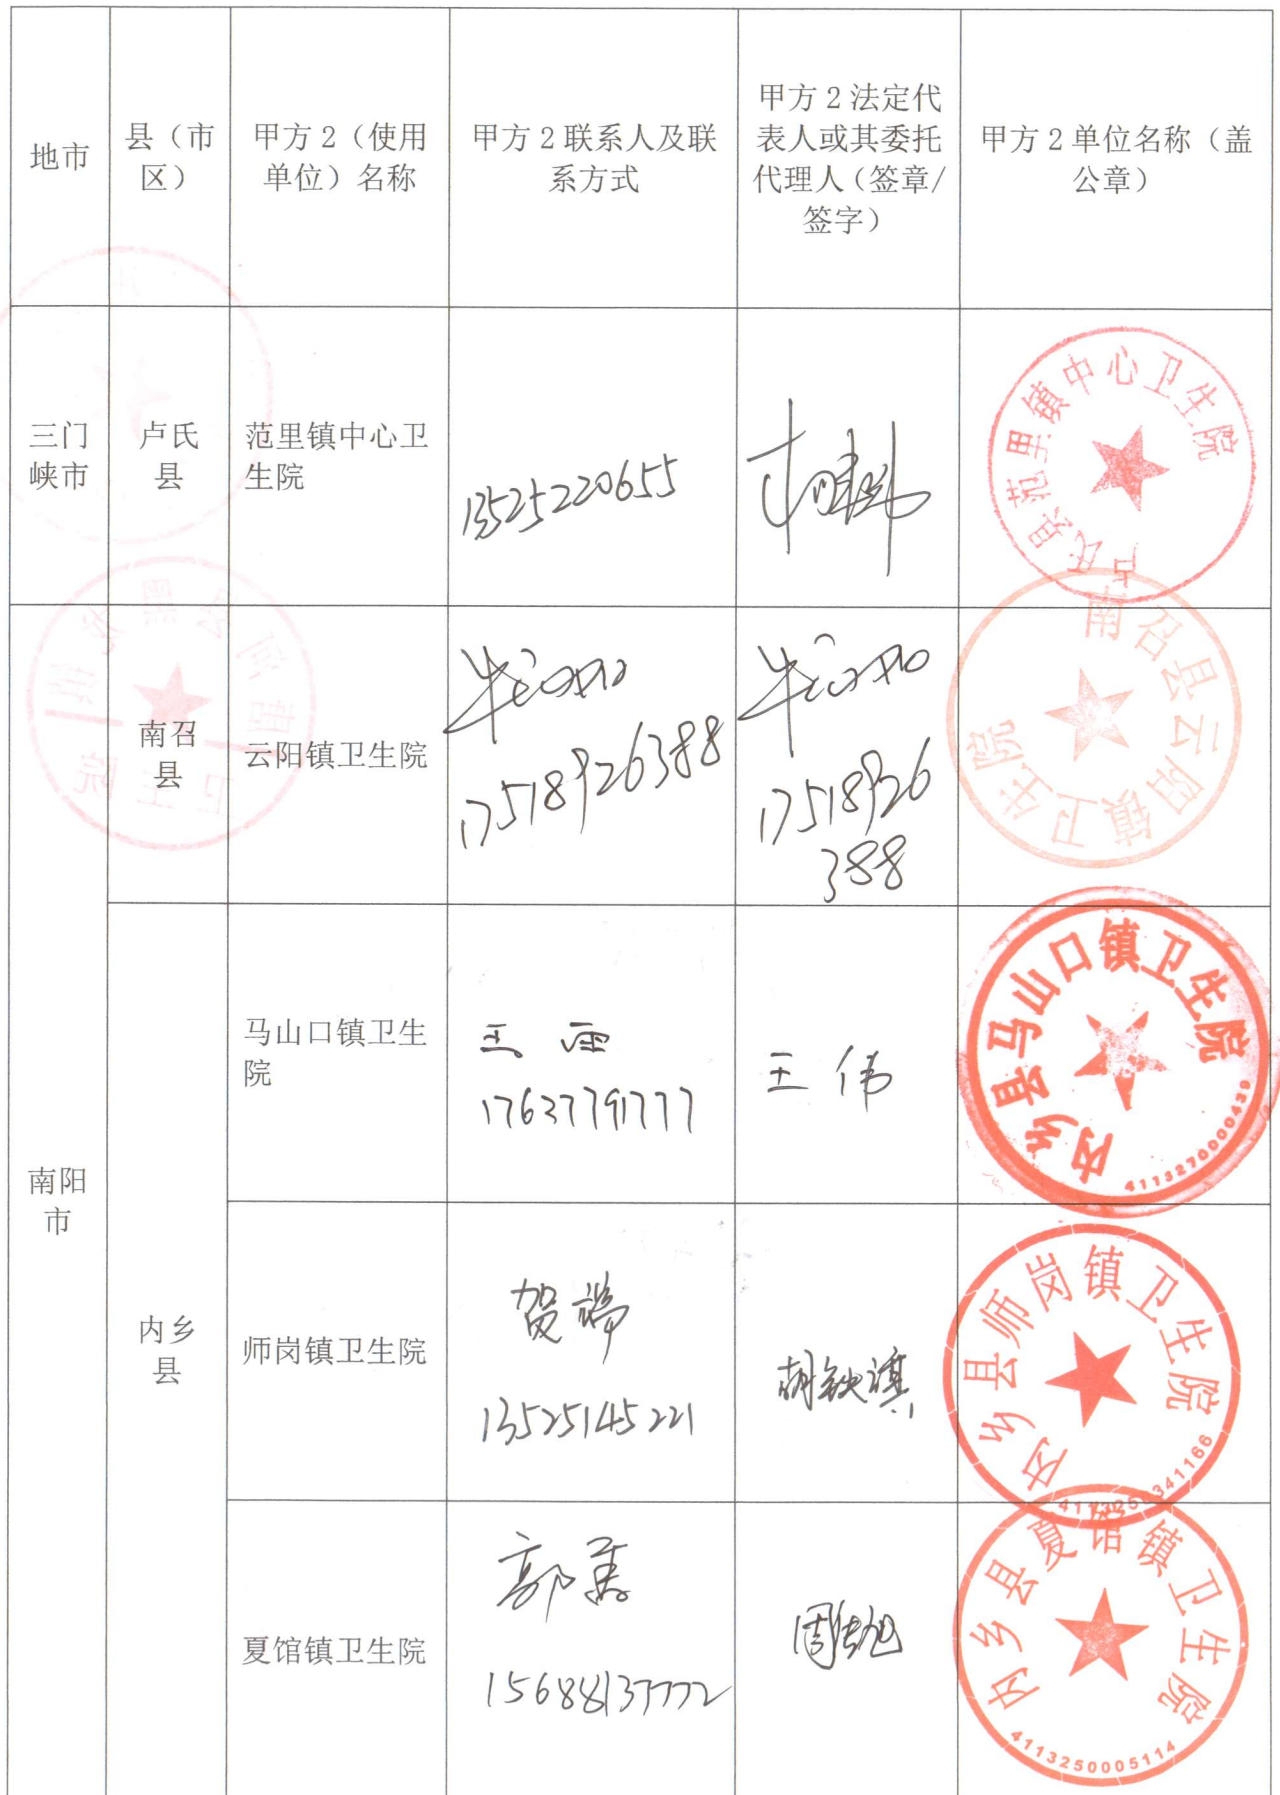 地市
县（市
区）
甲方 2（使用
单位）名称
甲方 2 联系人及联
系方式
甲方 2 法定代
表人或其委托
代理人（签章/
签字）
甲方 2 单位名称（盖
公章）
三门
峡市
卢氏
县
范里镇中心卫
生院
13525220655
卢氏县范里镇中心卫生院
南阳
市
南召
县
云阳镇卫生院
17518926388
17518926
388
南召县云阳镇卫生院
内乡
县
马山口镇卫生
院
王
17637791777
王伟
内乡县马山口镇卫生院
4113270000439
师岗镇卫生院
贺
13525145221
胡铁
内乡县师岗镇卫生院
夏馆镇卫生院
郭
15688137772
周旭
内乡县夏馆镇卫生院
4113250005114